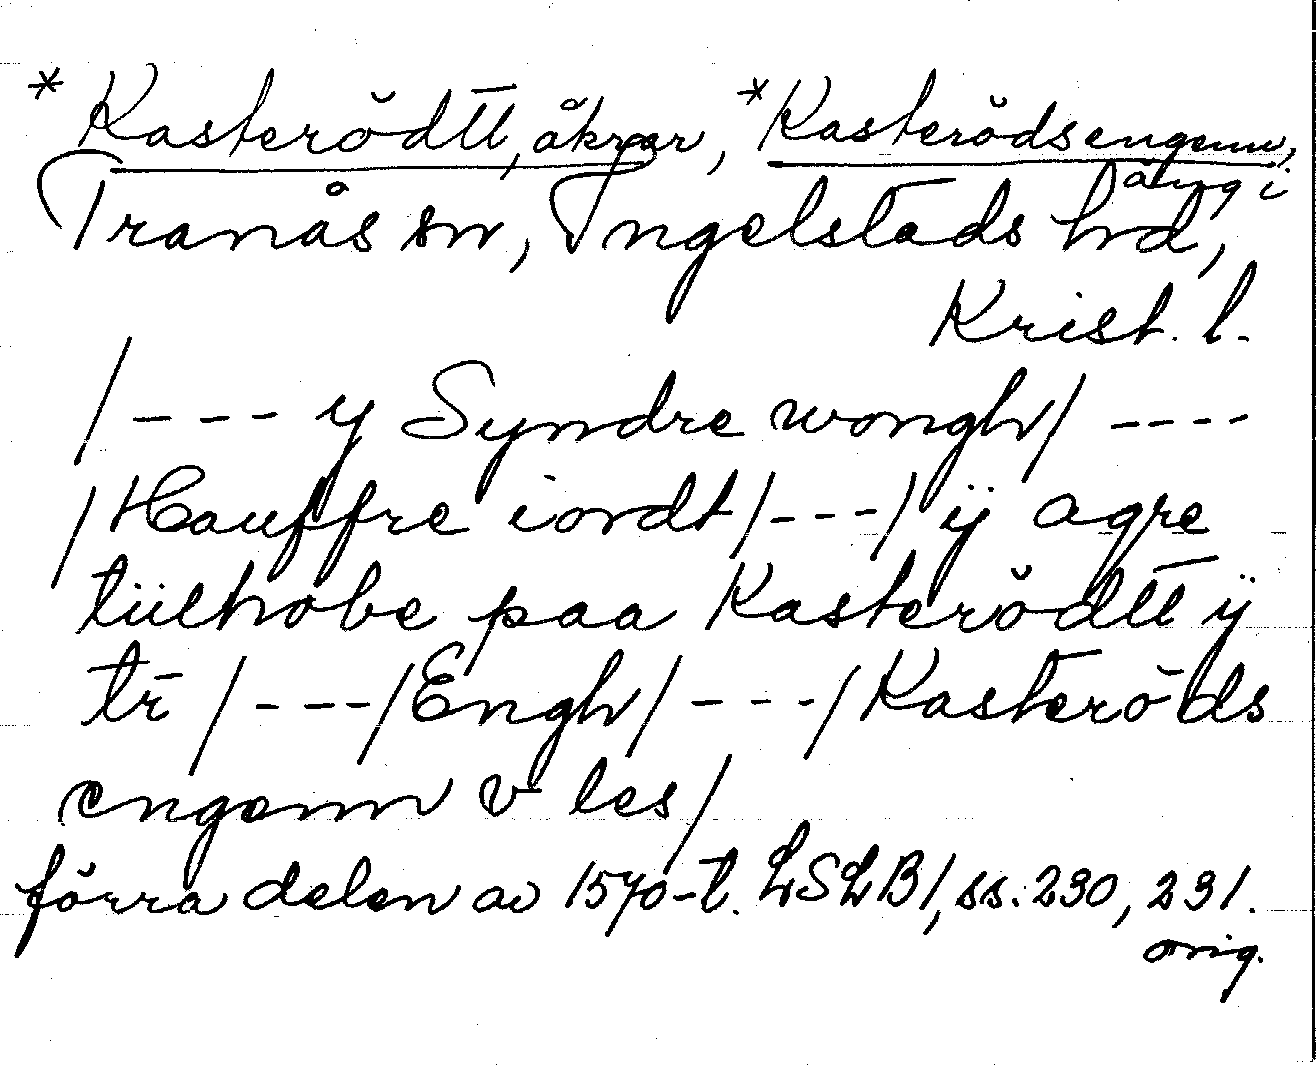 * Kasterŏdtt, åkrar, * Kasterŏdsengenn,
äng i
Tranås sn, Ingelstads hd,
Krist. l.
/--- y Syndre wongh/ ----
/Hauffre iordt/---/ ÿ agre
tiilhobe paa Kasterŏdtt ÿ
tr̄ /---/Engh/---/Kasterŏds
engenn v les/
förra delen av 1570-t. LSLB1, ss. 230, 231.
orig.